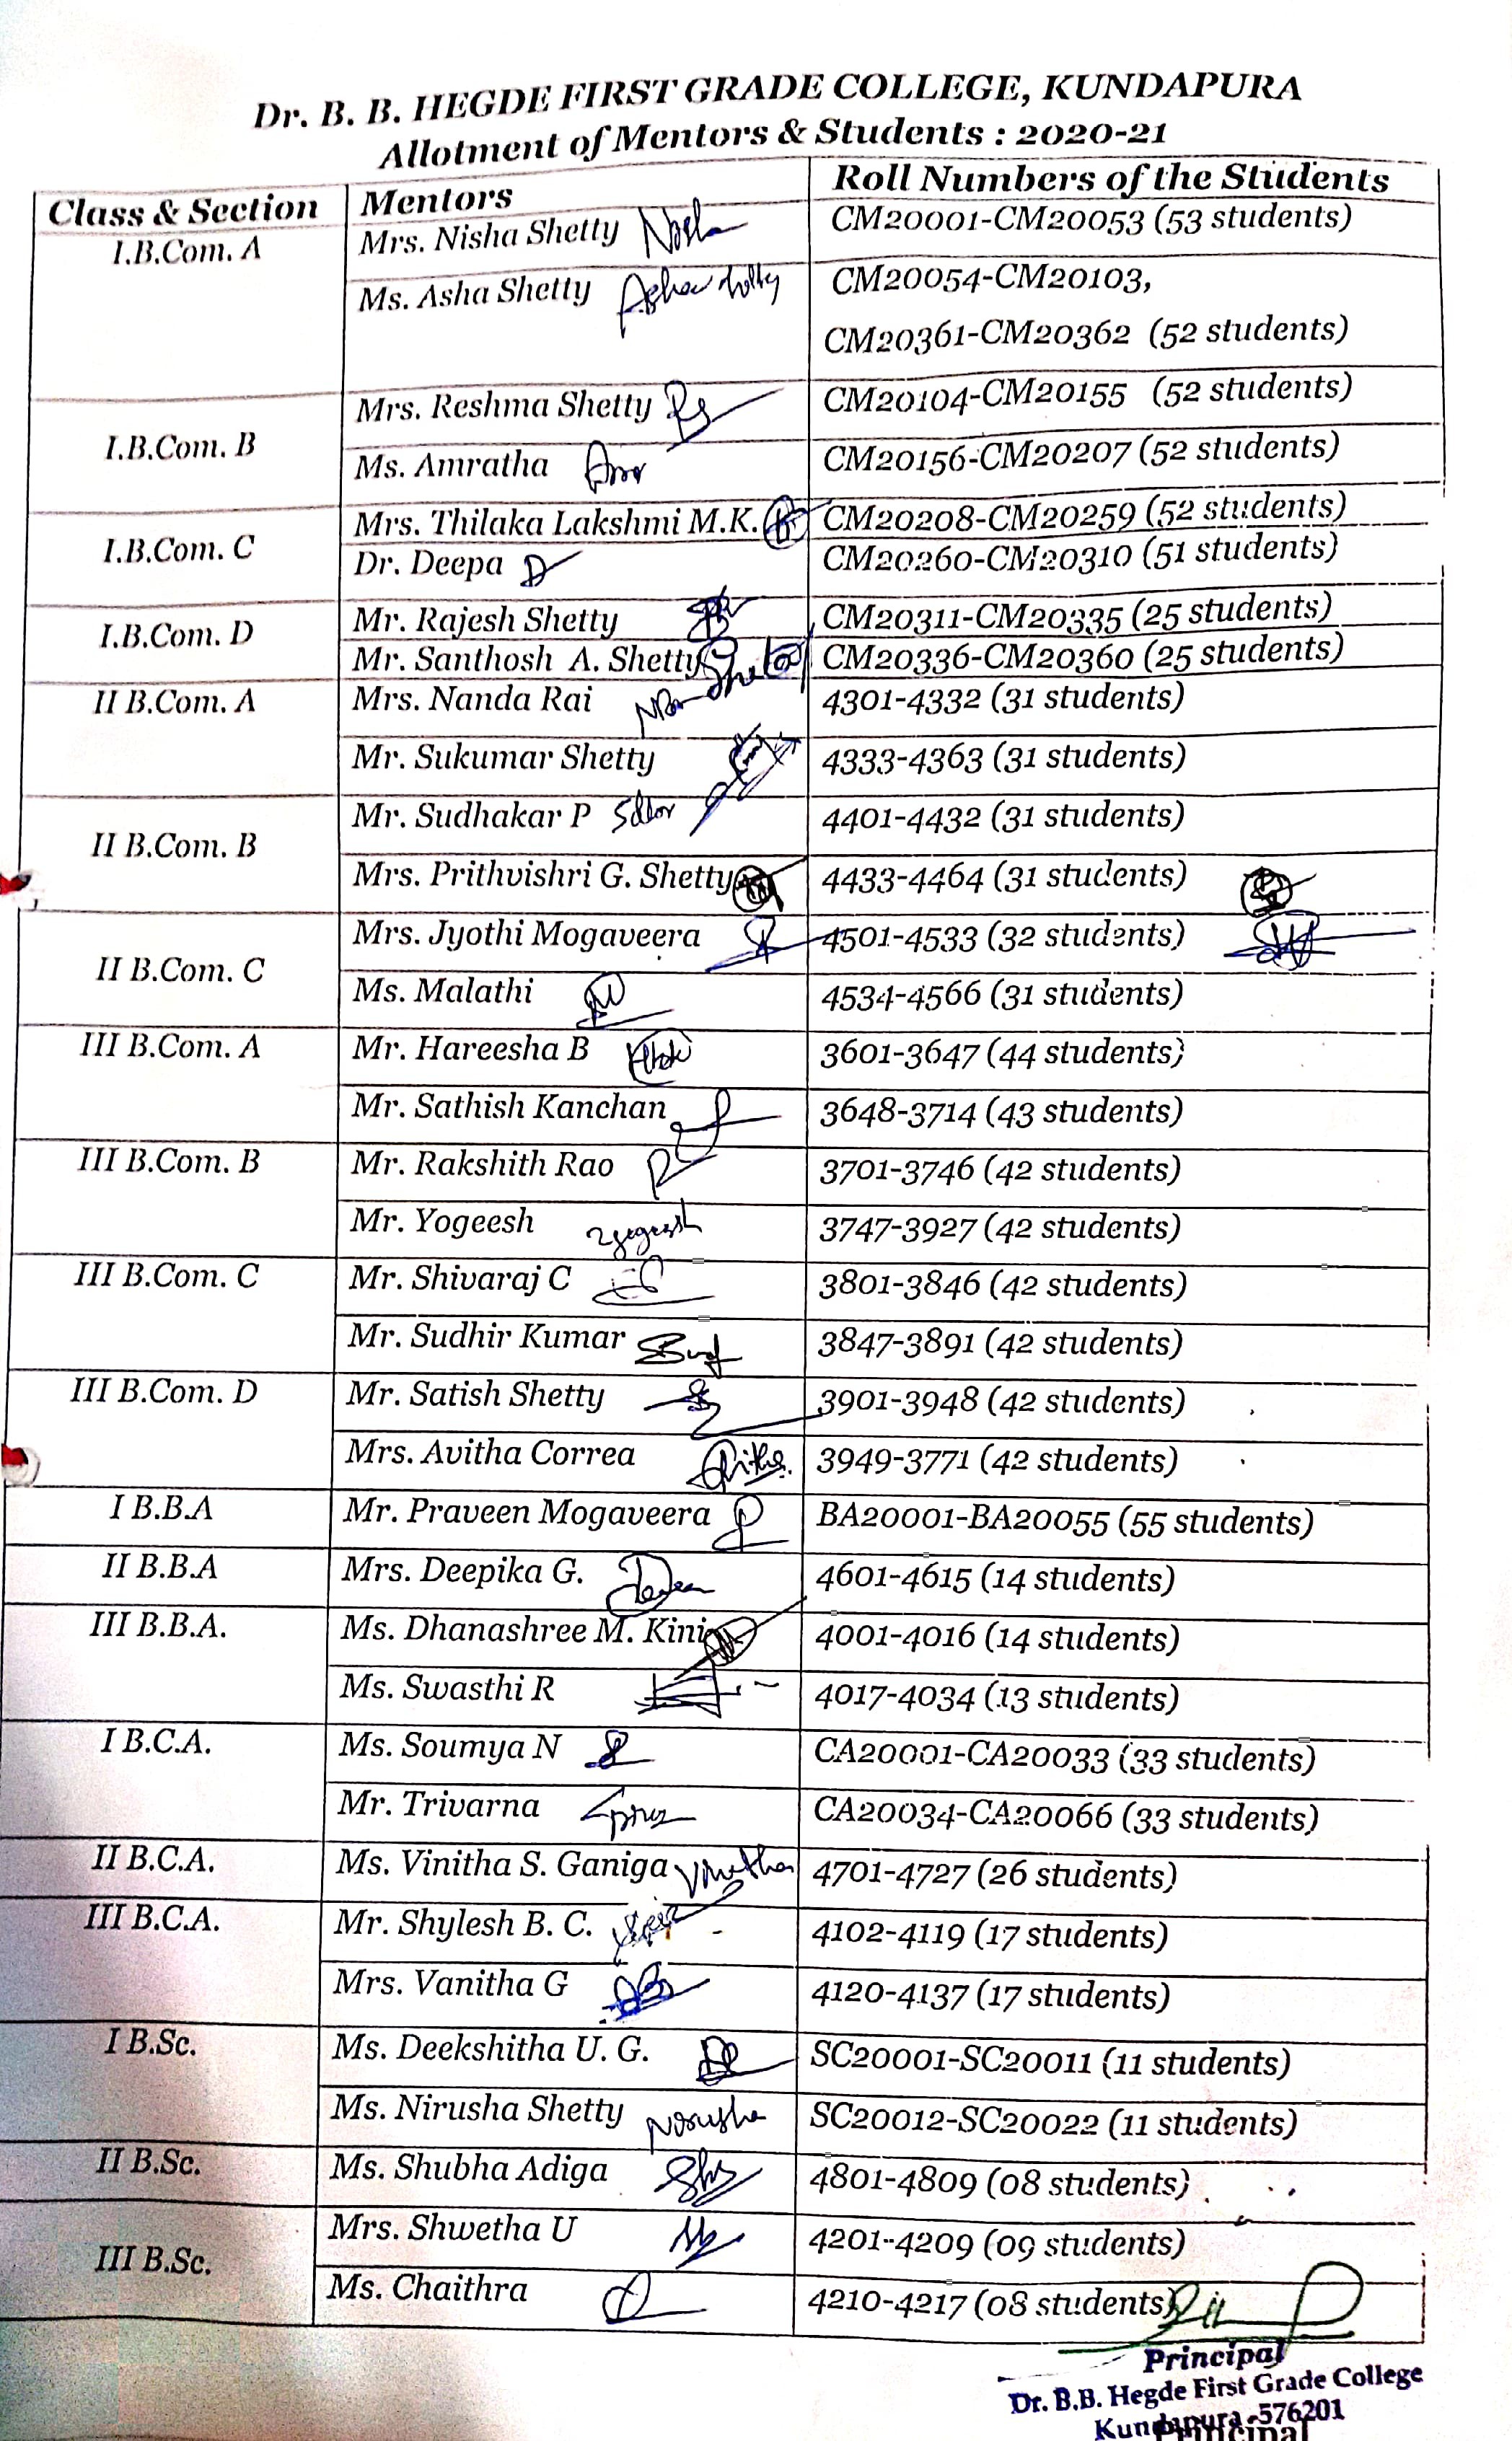 Dr. B. B. HEGDE FIRST GRADE COLLEGE, KUNDAPURA
Allotment of Mentors & Students : 2020-21
Class & Section Mentors Roll Numbers of the Students
I.B.Com. A Mrs. Nisha Shetty Nisha CM20001-CM20053 (53 students)
Ms. Asha Shetty Asha Shetty CM20054-CM20103,
CM20361-CM20362 (52 students)
I.B.Com. B Mrs. Reshma Shetty CM20104-CM20155 (52 students)
Ms. Amratha CM20156-CM20207 (52 students)
I.B.Com. C Mrs. Thilaka Lakshmi M.K. CM20208-CM20259 (52 students)
Dr. Deepa CM20260-CM20310 (51 students)
I.B.Com. D Mr. Rajesh Shetty CM20311-CM20335 (25 students)
Mr. Santhosh A. Shetty CM20336-CM20360 (25 students)
II B.Com. A Mrs. Nanda Rai 4301-4332 (31 students)
Mr. Sukumar Shetty 4333-4363 (31 students)
II B.Com. B Mr. Sudhakar P 4401-4432 (31 students)
Mrs. Prithvishri G. Shetty 4433-4464 (31 students)
II B.Com. C Mrs. Jyothi Mogaveera 4501-4533 (32 students)
Ms. Malathi 4534-4566 (31 students)
III B.Com. A Mr. Hareesha B 3601-3647 (44 students)
Mr. Sathish Kanchan 3648-3714 (43 students)
III B.Com. B Mr. Rakshith Rao 3701-3746 (42 students)
Mr. Yogeesh Yogeesh 3747-3927 (42 students)
III B.Com. C Mr. Shivaraj C 3801-3846 (42 students)
Mr. Sudhir Kumar 3847-3891 (42 students)
III B.Com. D Mr. Satish Shetty 3901-3948 (42 students)
Mrs. Avitha Correa 3949-3771 (42 students)
I B.B.A Mr. Praveen Mogaveera BA20001-BA20055 (55 students)
II B.B.A Mrs. Deepika G. 4601-4615 (14 students)
III B.B.A. Ms. Dhanashree M. Kini 4001-4016 (14 students)
Ms. Swasthi R 4017-4034 (13 students)
I B.C.A. Ms. Soumya N CA20001-CA20033 (33 students)
Mr. Trivarna CA20034-CA20066 (33 students)
II B.C.A. Ms. Vinitha S. Ganiga Vinitha 4701-4727 (26 students)
III B.C.A. Mr. Shylesh B. C. 4102-4119 (17 students)
Mrs. Vanitha G 4120-4137 (17 students)
I B.Sc. Ms. Deekshitha U. G. SC20001-SC20011 (11 students)
Ms. Nirusha Shetty Nirusha SC20012-SC20022 (11 students)
II B.Sc. Ms. Shubha Adiga 4801-4809 (08 students)
III B.Sc. Mrs. Shwetha U 4201-4209 (09 students)
Ms. Chaithra 4210-4217 (08 students)
Principal
Dr. B.B. Hegde First Grade College
Kundapura -576201
Principal